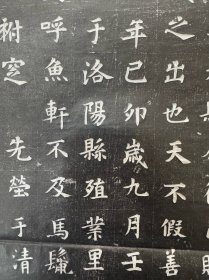 之出也天不假善
年己卯歲九月壬
于洛陽縣殖業里
呼魚軒不及馬鬣
祔窆　先塋于清